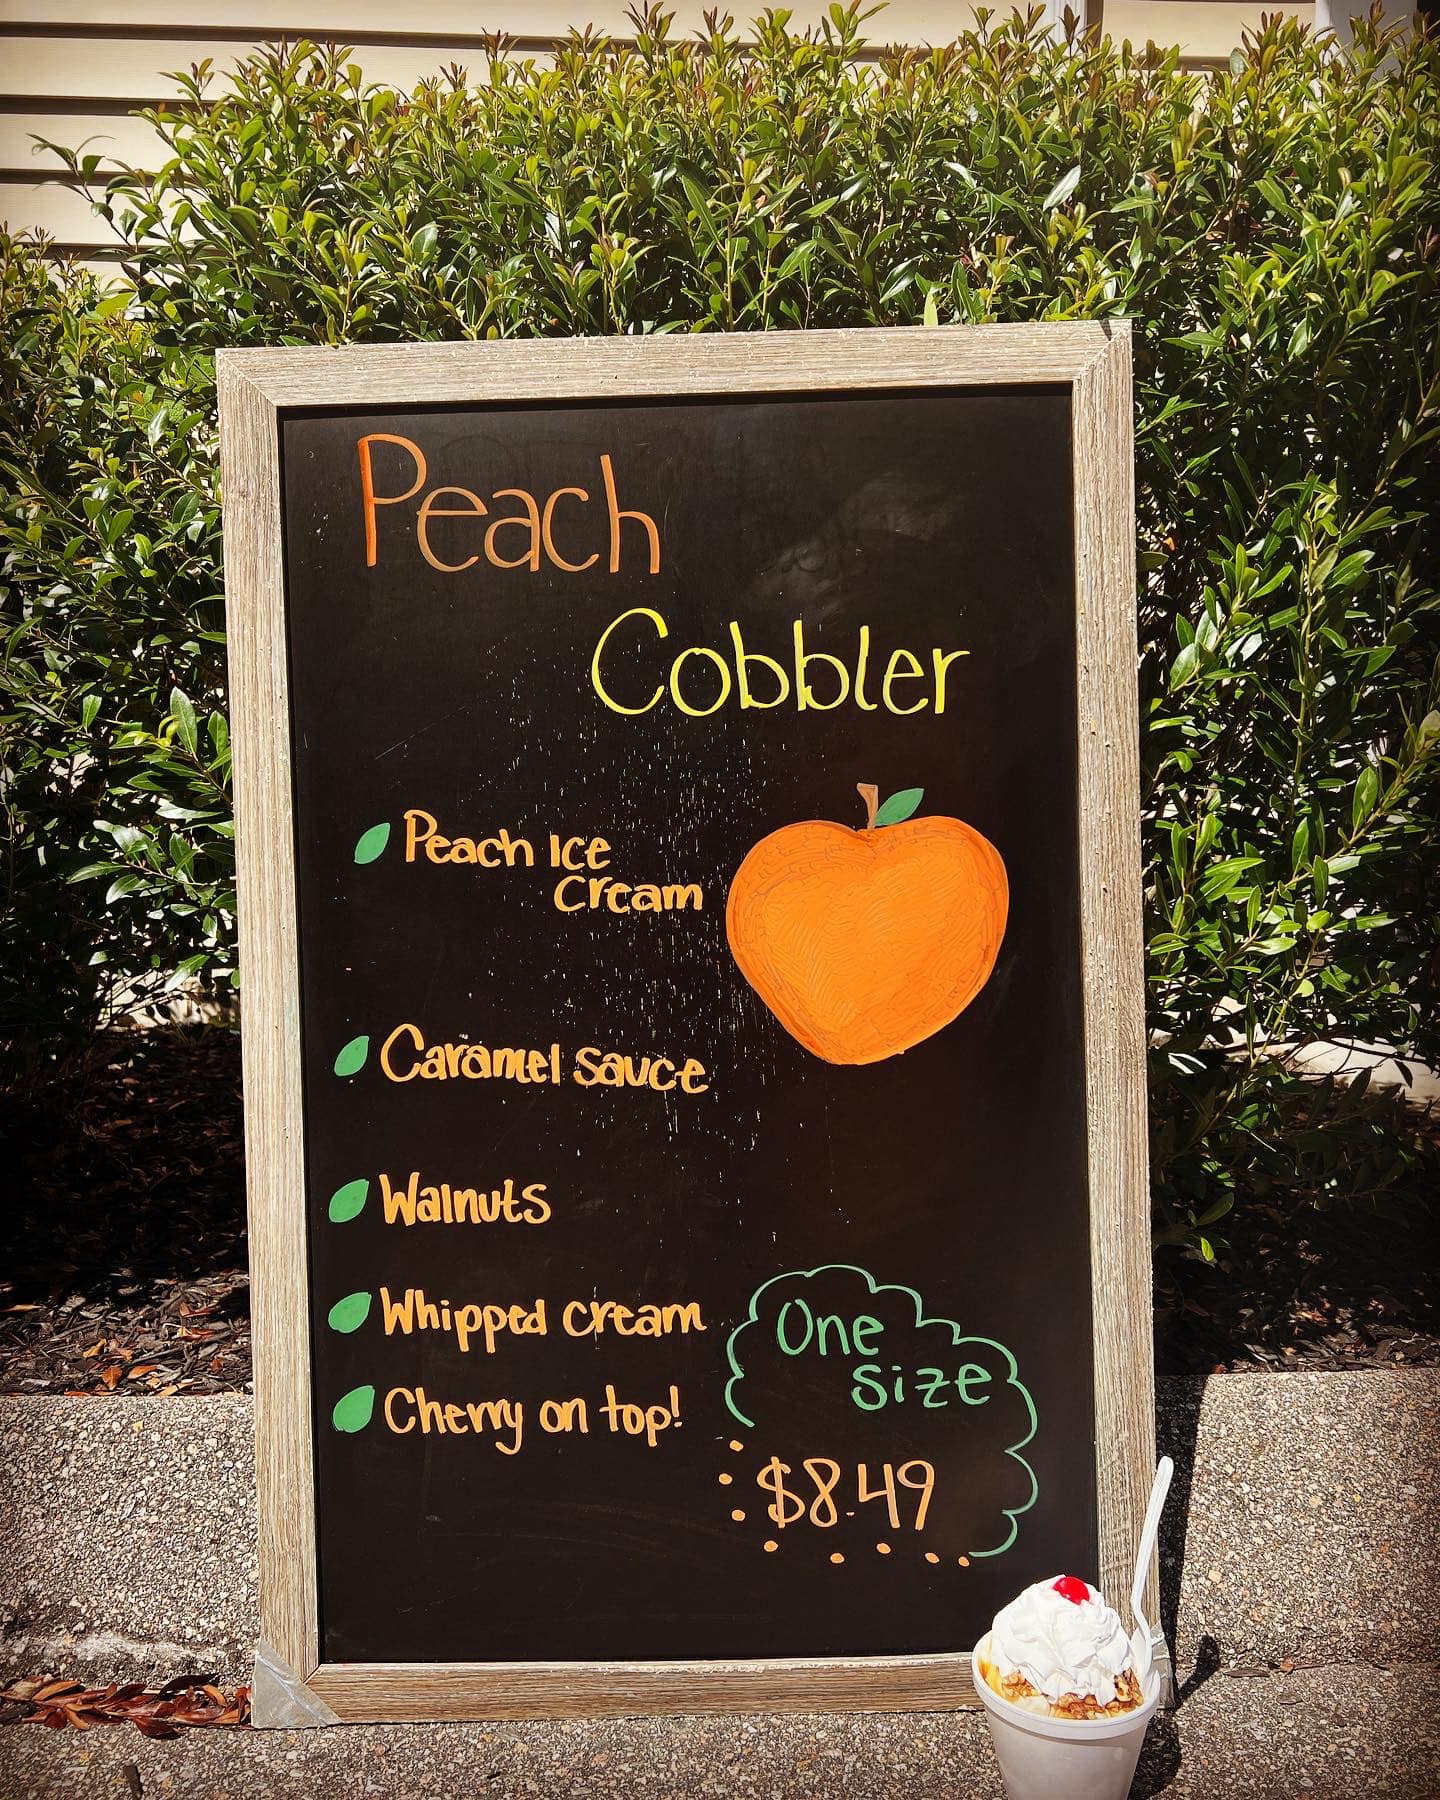 Peach
Cobbler
Peach Ice
Cream
Caramel sauce
Walnuts
Whipped cream
Cherry on top!
One
size
$8.49